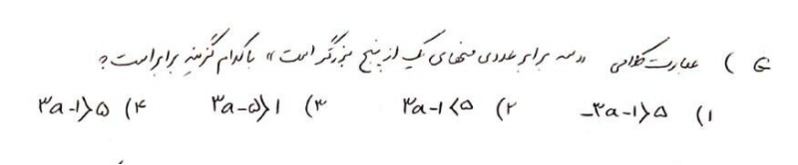 ۵) عبارت کلامی «سه برابر عددی منهای یک از پنج بزرگتر است» با کدام گزینه برابر است؟
۱) -۳a-۱>۵ ۲) ۳a-۱<۵ ۳) ۳a-۵>۱ ۴) ۳a-۱>۵